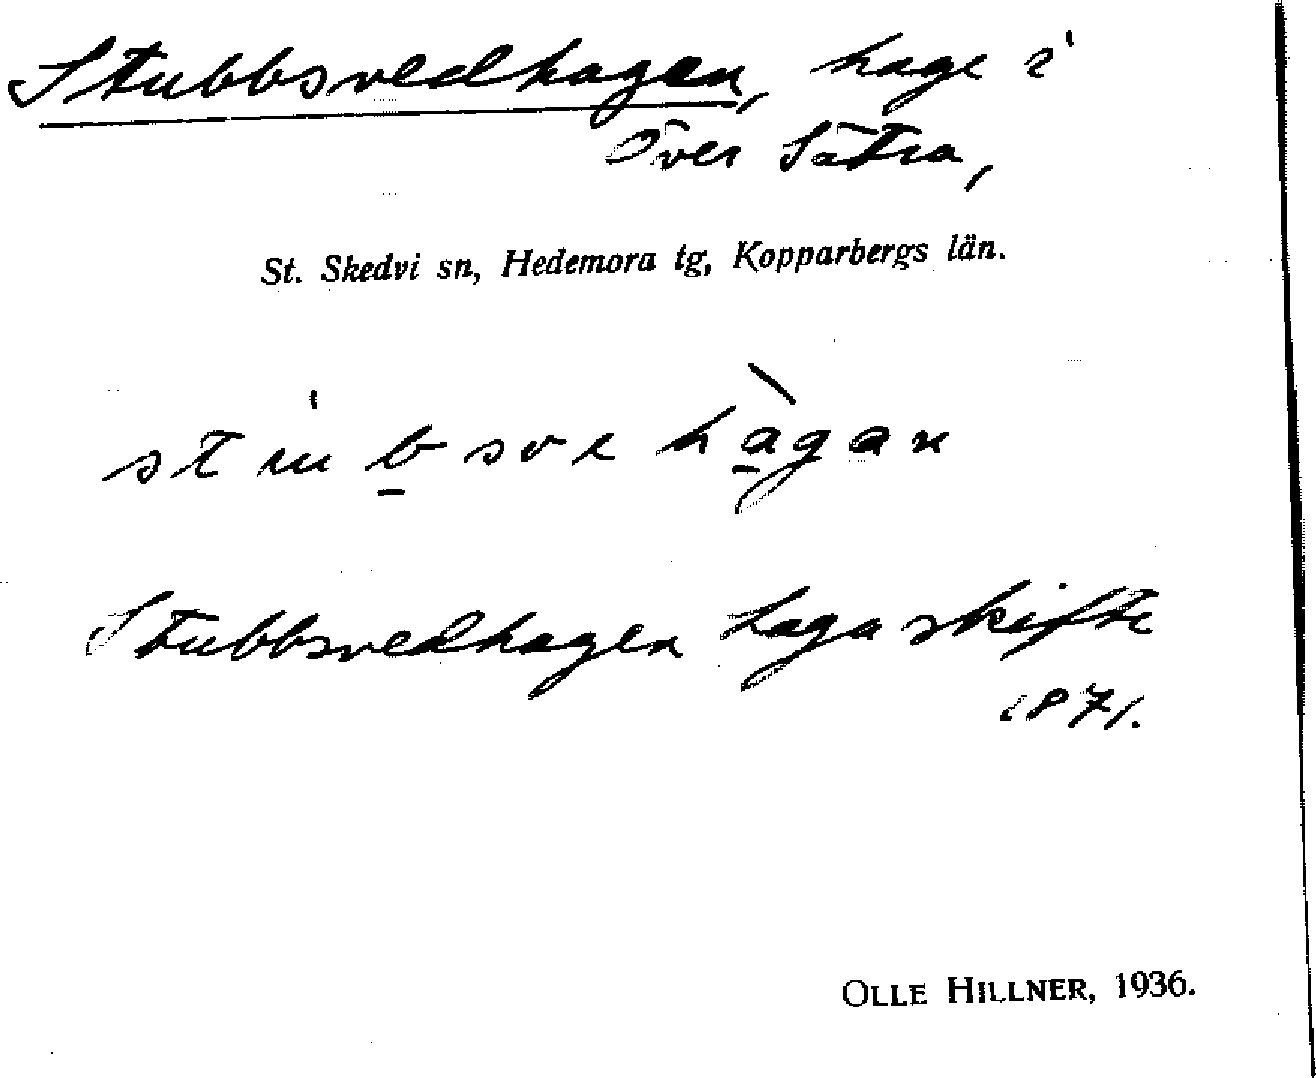 Stubbsvedhagen, hage i
Över Sätra,
St. Skedvi sn, Hedemora tg, Kopparbergs län.
Stubbsvedhagen Laga skifte
1871.
OLLE HILLNER, 1936.